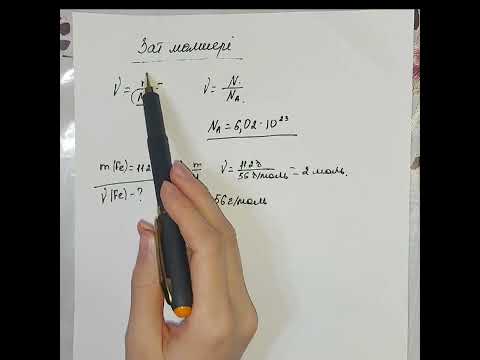 Зат мөлшері
ν = m/M ν = N/N_A
N_A = 6,02 · 10^23
m(Fe) = 112 m ν = 112г/56г/моль = 2 моль.
ν(Fe) - ? 56г/моль